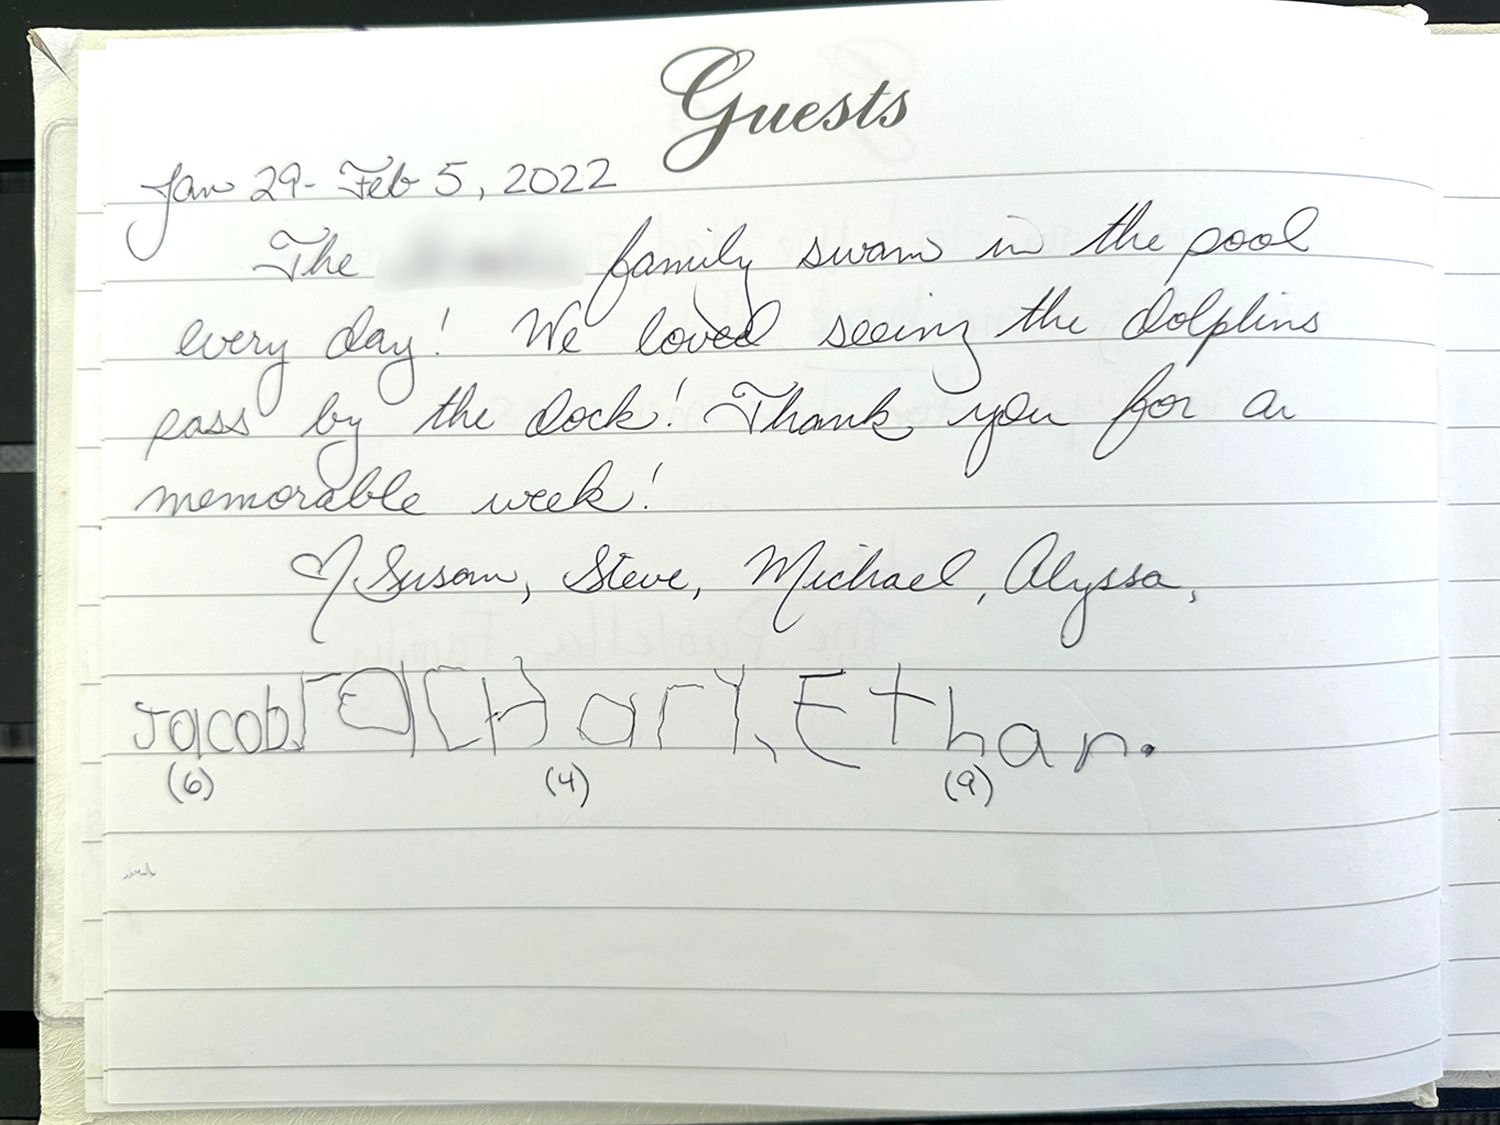 Guests
Jan 29 - Feb 5, 2022
The family swam in the pool
every day! We loved seeing the dolphins
pass by the dock! Thank you for a
memorable week!
♡ Susan, Steve, Michael, Alyssa,
Jacob, Zachary, Ethan.
(6) (4) (9)